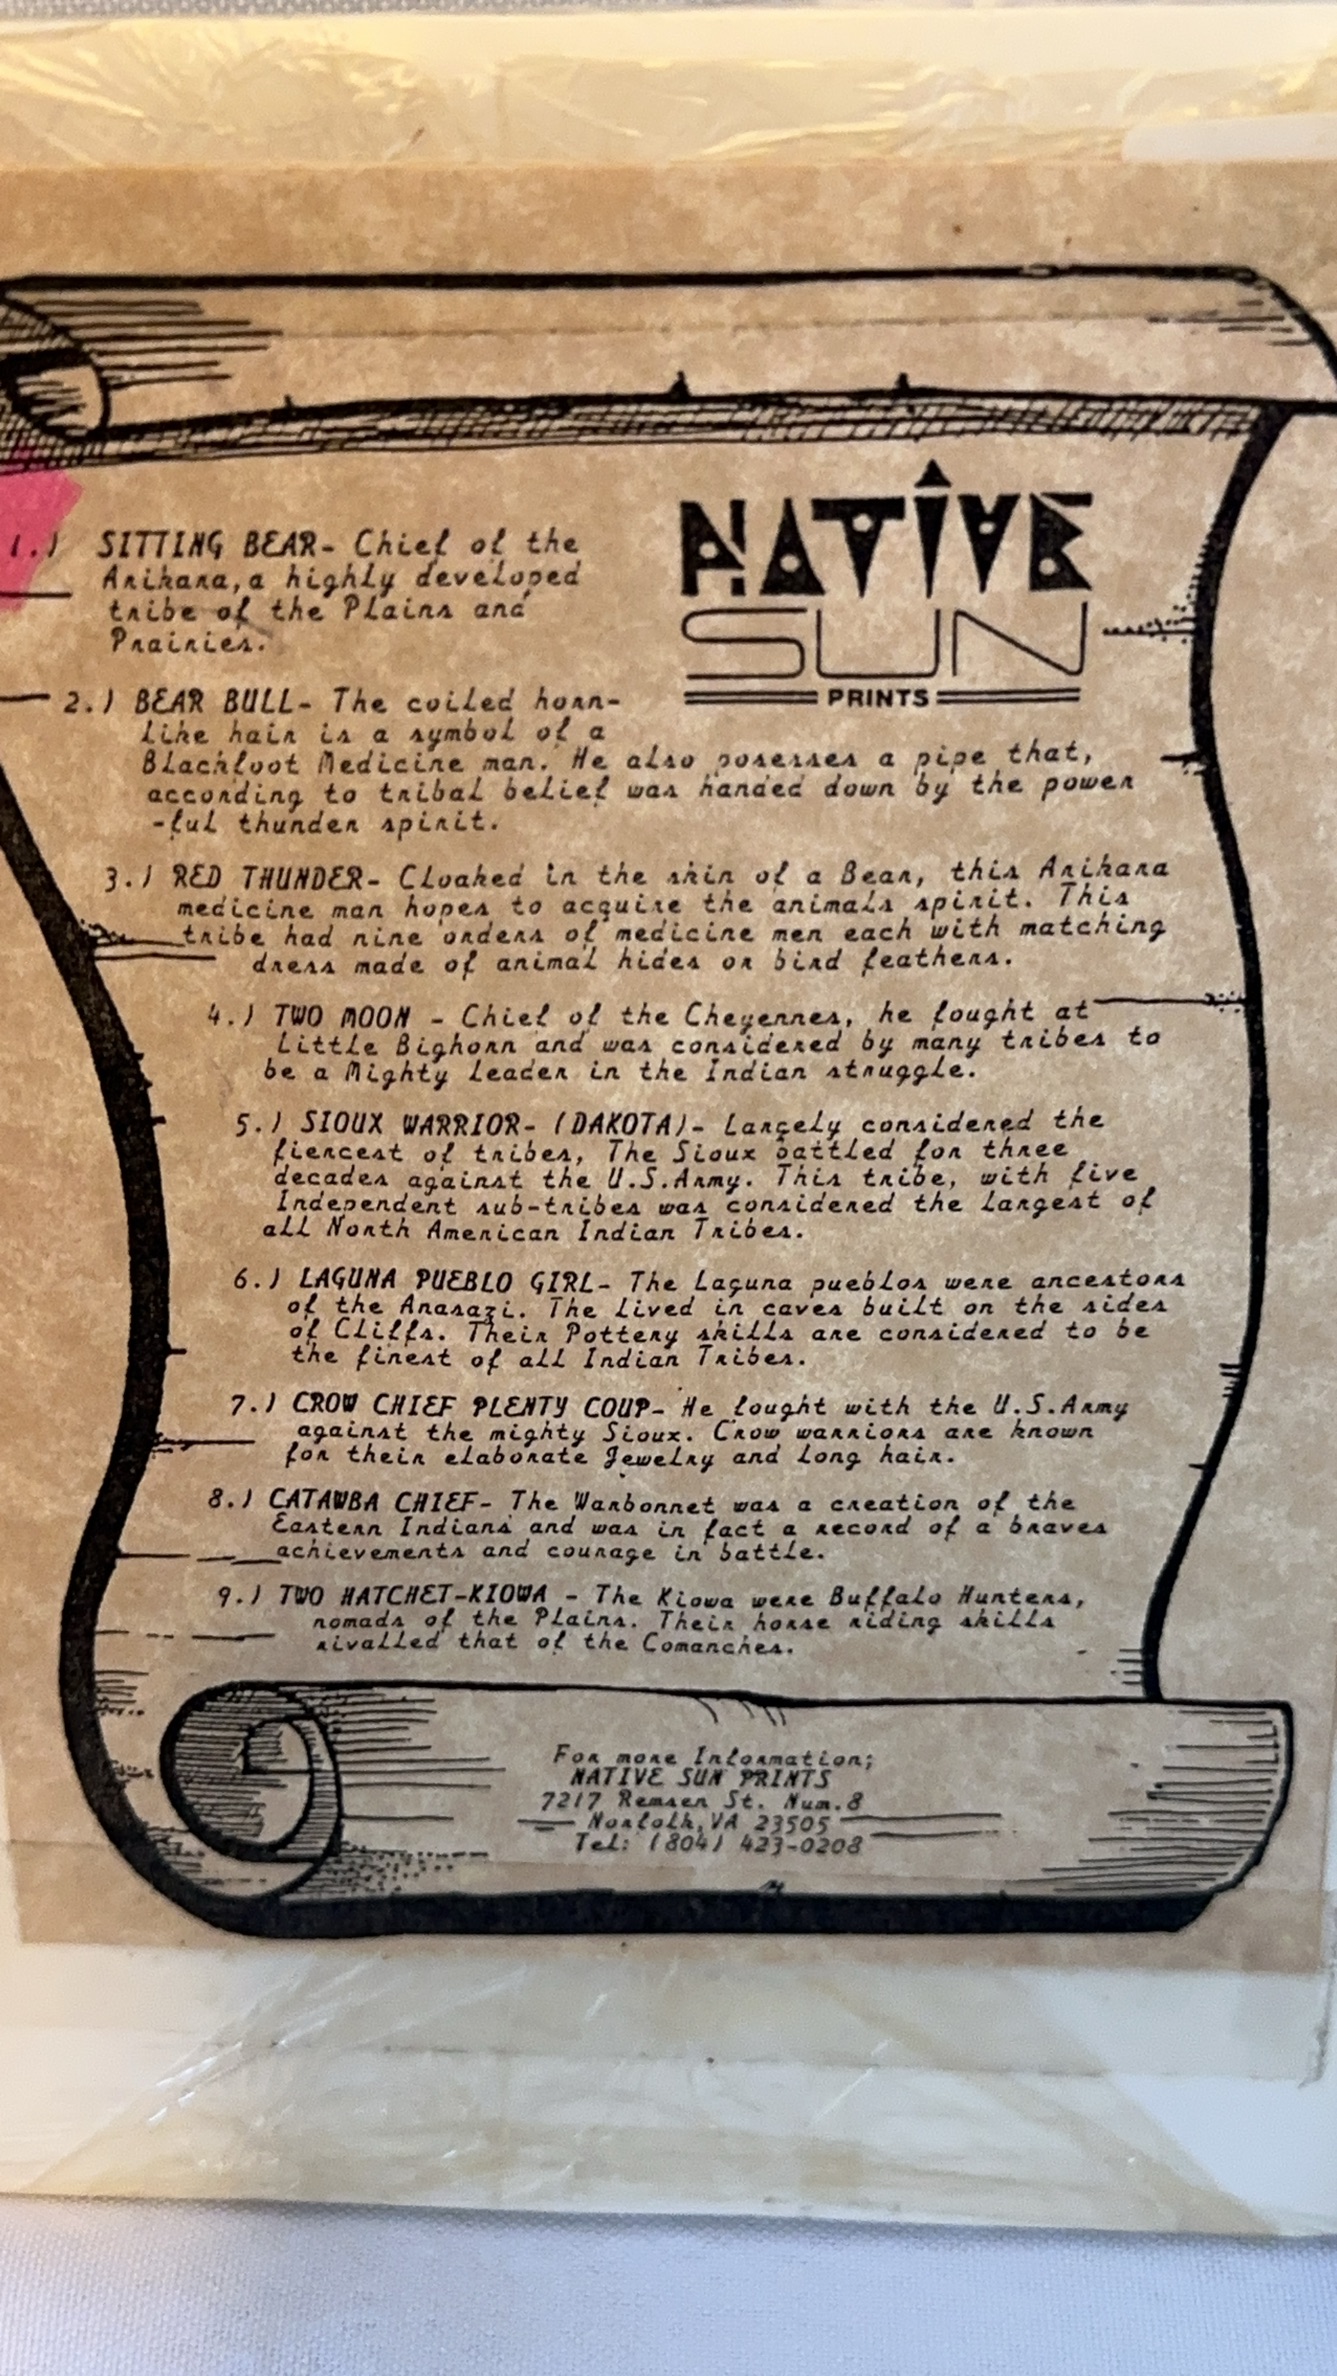 NATIVE
SUN
PRINTS
1.) SITTING BEAR- Chief of the
Arikara, a highly developed
tribe of the Plains and
Prairies.
2.) BEAR BULL- The coiled horn-
like hair is a symbol of a
Blackfoot Medicine man. He also posesses a pipe that,
according to tribal belief was handed down by the power
-ful thunder spirit.
3.) RED THUNDER- Cloaked in the skin of a Bear, this Arikara
medicine man hopes to acquire the animals spirit. This
tribe had nine orders of medicine men each with matching
dress made of animal hides or bird feathers.
4.) TWO MOON - Chief of the Cheyennes, he fought at
Little Bighorn and was considered by many tribes to
be a Mighty Leader in the Indian struggle.
5.) SIOUX WARRIOR- (DAKOTA)- Largely considered the
fiercest of tribes, The Sioux battled for three
decades against the U.S.Army. This tribe, with five
Independent sub-tribes was considered the largest of
all North American Indian Tribes.
6.) LAGUNA PUEBLO GIRL- The Laguna pueblos were ancestors
of the Anasazi. The lived in caves built on the sides
of Cliffs. Their Pottery skills are considered to be
the finest of all Indian Tribes.
7.) CROW CHIEF PLENTY COUP- He fought with the U.S.Army
against the mighty Sioux. Crow warriors are known
for their elaborate Jewelry and long hair.
8.) CATAWBA CHIEF- The Warbonnet was a creation of the
Eastern Indians and was in fact a record of a braves
achievements and courage in battle.
9.) TWO HATCHET-KIOWA - The Kiowa were Buffalo Hunters,
nomads of the Plains. Their horse riding skills
rivalled that of the Comanches.
For more Information;
NATIVE SUN PRINTS
7217 Remsen St. Num.8
Norfolk, VA 23505
Tel: (804) 423-0208